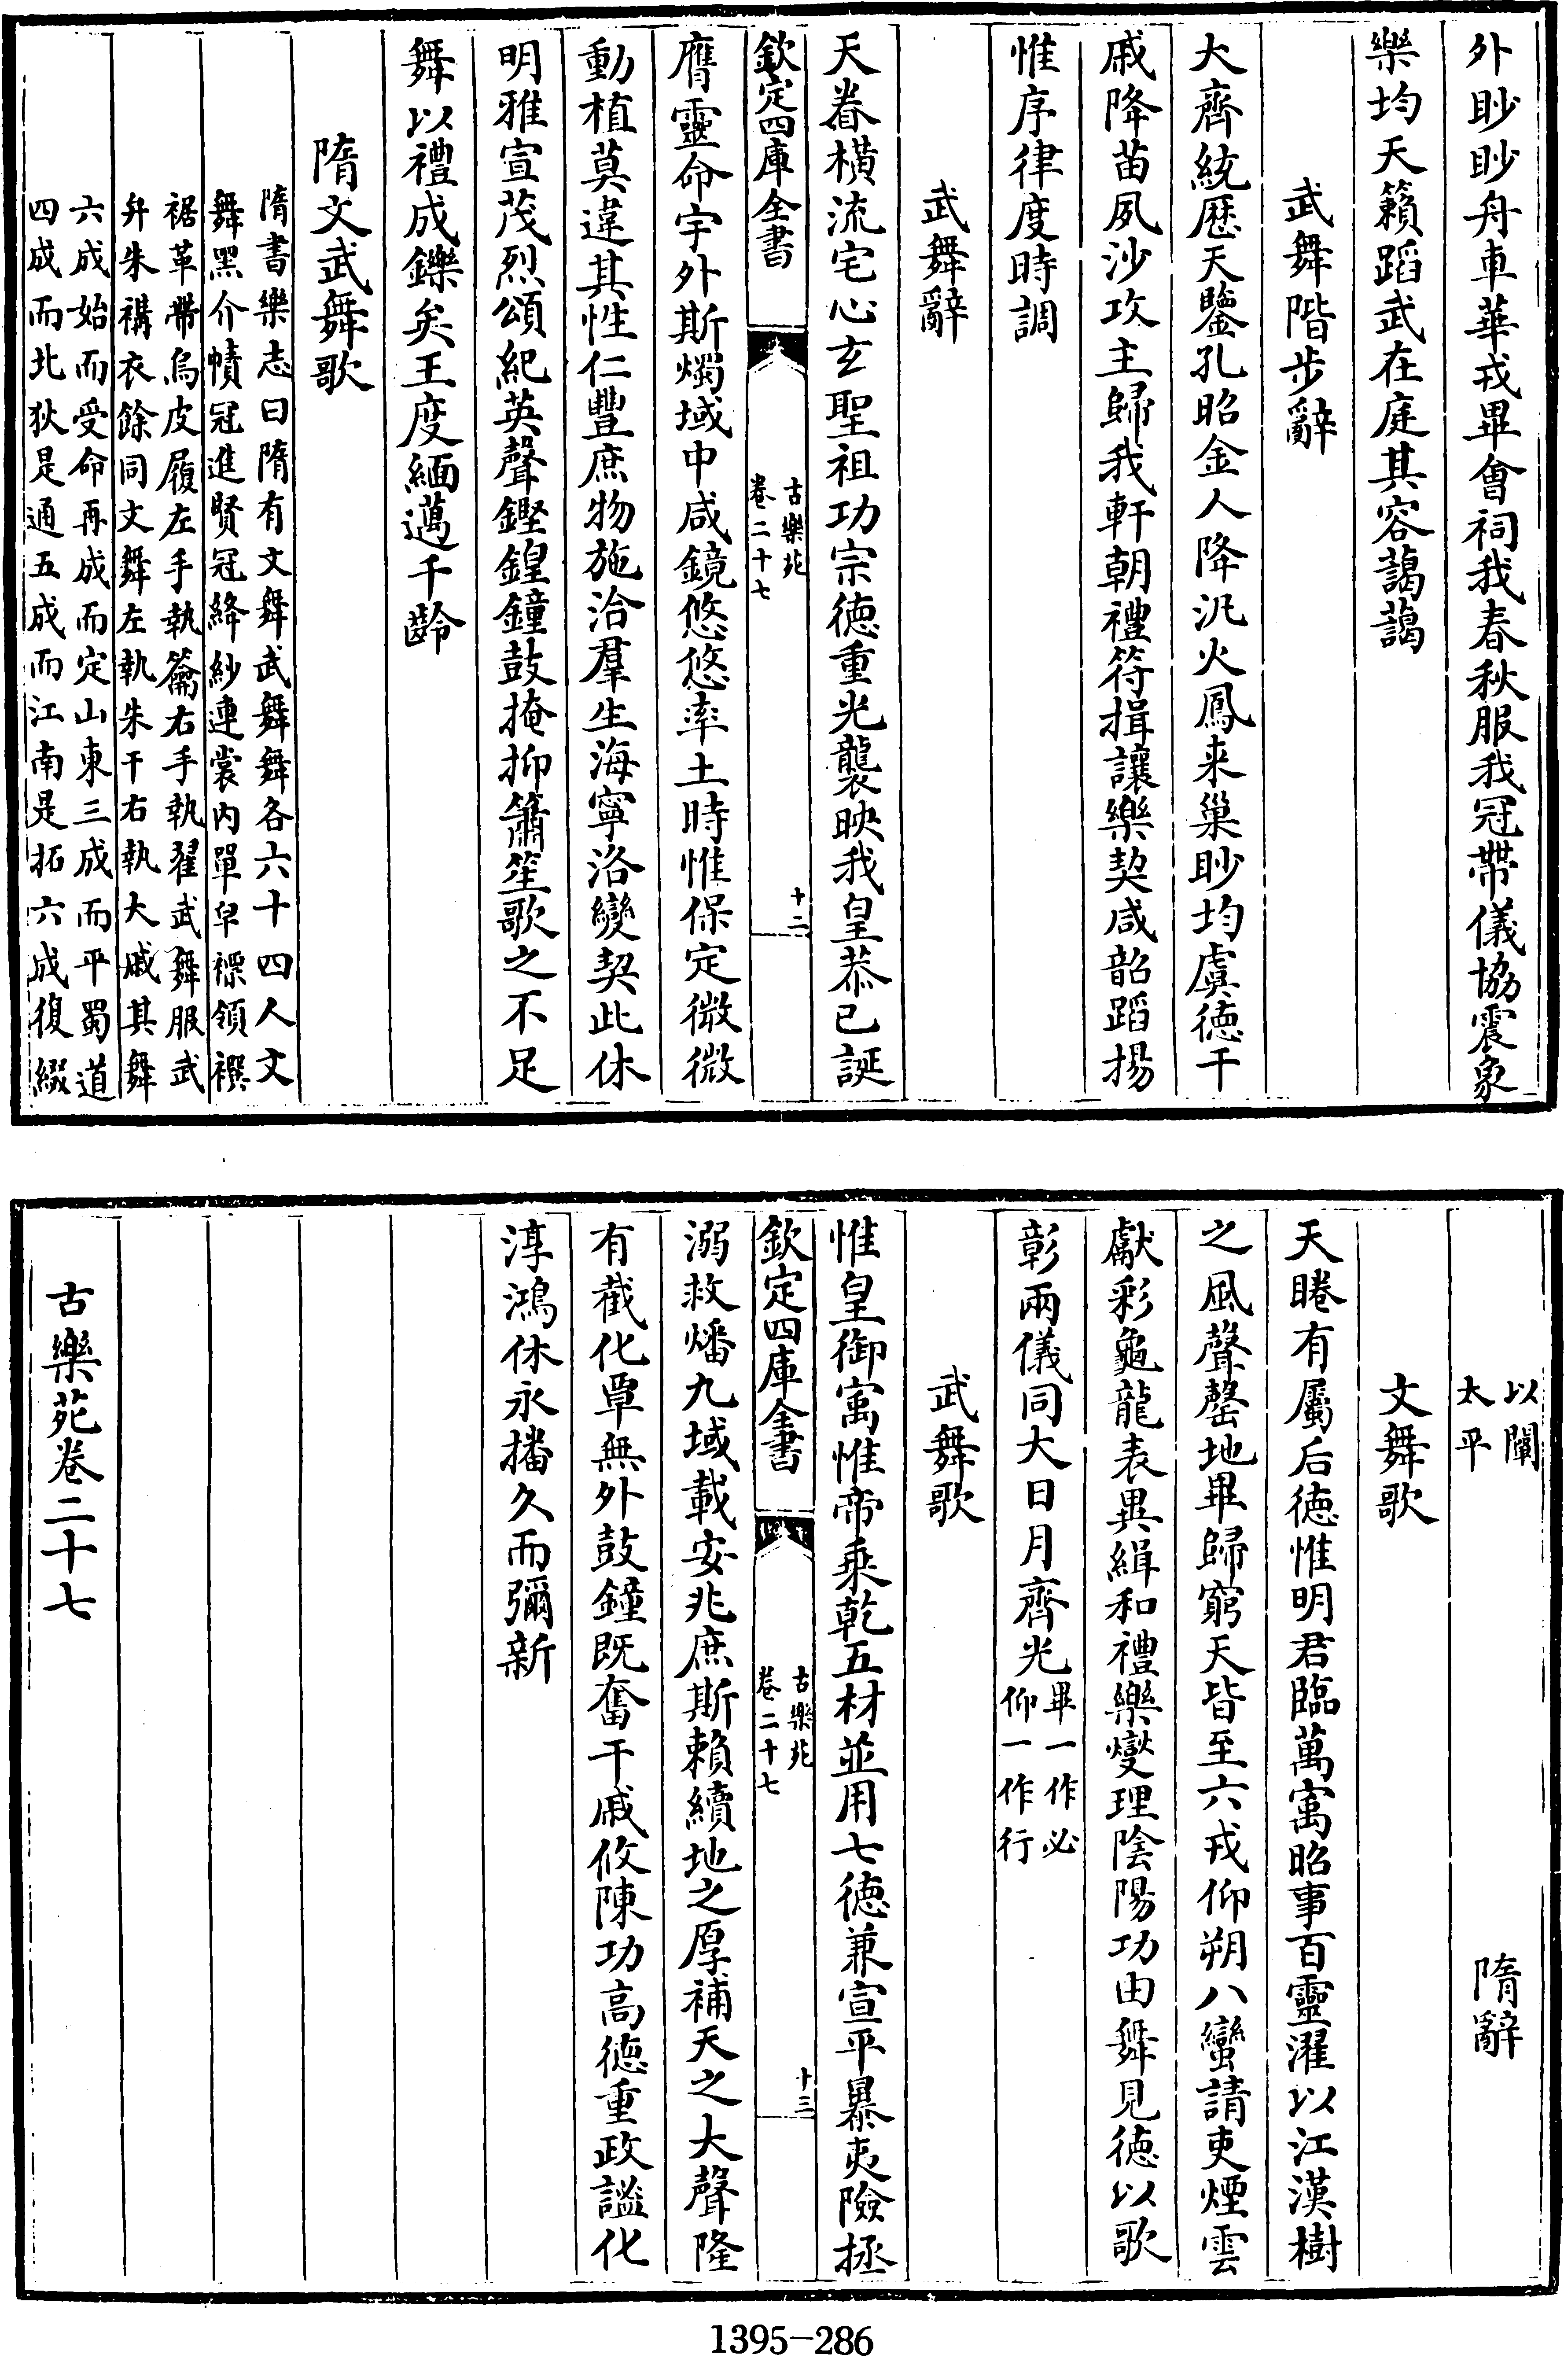 外眇眇舟車華戎畢會祠我春秋服我冠帶儀協震象
樂均天籟蹈武在庭其容藹藹
武舞階步辭
大齊統歴天鑒孔昭金人降汎火鳳来巢眇均虞徳干
戚降苗夙沙攻主歸我軒朝禮符揖讓樂契咸韶蹈揚
惟序律度時調
武舞辭
天眷橫流宅心玄聖祖功宗徳重光襲映我皇恭己誕
欽定四庫全書
古樂苑
卷二十七
十二
膺靈命宇外斯燭域中咸鏡悠悠率土時惟保定微微
動植莫違其性仁豐庶物施洽羣生海寧洛變契此休
明雅宣茂烈頌紀英聲鏗鍠鐘鼓掩抑簫笙歌之不足
舞以禮成鑠矣王度緬邁千齡
隋文武舞歌
隋書樂志曰隋有文舞武舞舞各六十四人文
舞黑介幘冠進賢冠絳紗連裳内單皁褾領襈
裾革帶烏皮履左手執籥右手執翟武舞服武
弁朱褠衣餘同文舞左執朱干右執大戚其舞
六成始而受命再成而定山東三成而平蜀道
四成而北狄是通五成而江南是拓六成復綴
以闡
太平
隋辭
文舞歌
天睠有屬后徳惟明君臨萬㝢昭事百靈濯以江漢樹
之風聲罄地畢歸窮天皆至六戎仰朔八蠻請吏煙雲
獻彩龜龍表異緝和禮樂燮理陰陽功由舞見徳以歌
彰兩儀同大日月齊光
畢一作必
仰一作行
武舞歌
惟皇御㝢惟帝乗乾五材並用七徳兼宣平暴夷險拯
欽定四庫全書
古樂苑
卷二十七
十三
溺救燔九域載安兆庶斯賴續地之厚補天之大聲隆
有截化覃無外鼓鐘既奮干戚攸陳功高徳重政謐化
淳鴻休永播久而彌新
古樂苑卷二十七
1395-286